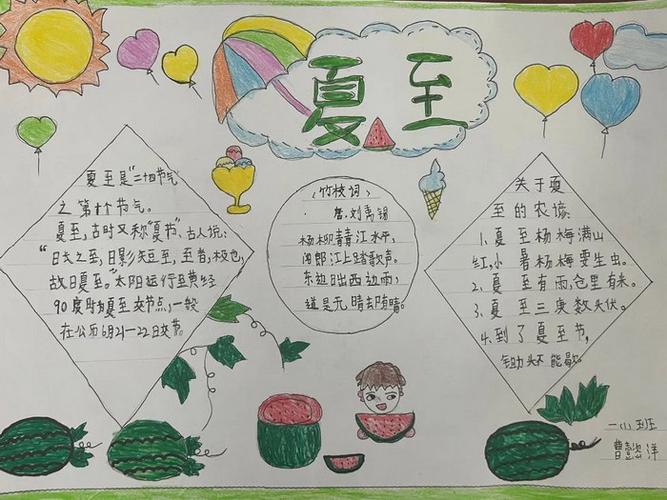 夏至
夏至是“二十四节气
之第十个节气。
夏至，古时又称“夏节”、古人说：
“日长之至，日影短至，至者，极也，
故曰夏至。”太阳运行至黄经
90度时为夏至交节点，一般
在公历6月21-22日交节。
《竹枝词》
唐．刘禹锡
杨柳青青江水平，
闻郎江上踏歌声。
东边日出西边雨，
道是无晴却有晴。
关于夏
至的农谚
1、夏至杨梅满山
红，小暑杨梅要生虫。
2、夏至有雨，仓里有米。
3、夏至三庚数头伏。
4.到了夏至节，
锄头不能歇。
一(1)班